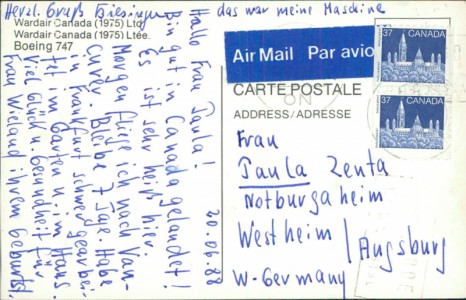 Herzl. Gruß Giesinger
das war meine Maschine
Wardair Canada (1975) Ltd.
Wardair Canada (1975) Ltée.
Boeing 747
20.06.88
Hallo Frau Paula!
Bin gut in Canada gelandet!
Es ist sehr heiß hier.
Morgen fliege ich nach Van-
cuver. Bleibe 7 Tage. Habe
in Frankfurt schwer gearbei-
tet im Garten u. im Haus.
Viel Glück u. Gesundheit für
Frau Wieland ihrem Geburtst
Air Mail Par avion
CARTE POSTALE
ADDRESS/ADRESSE
37 CANADA
37 CANADA
ON
Frau
Paula Zenta
Notburgaheim
Westheim / Augsburg
W-Germany